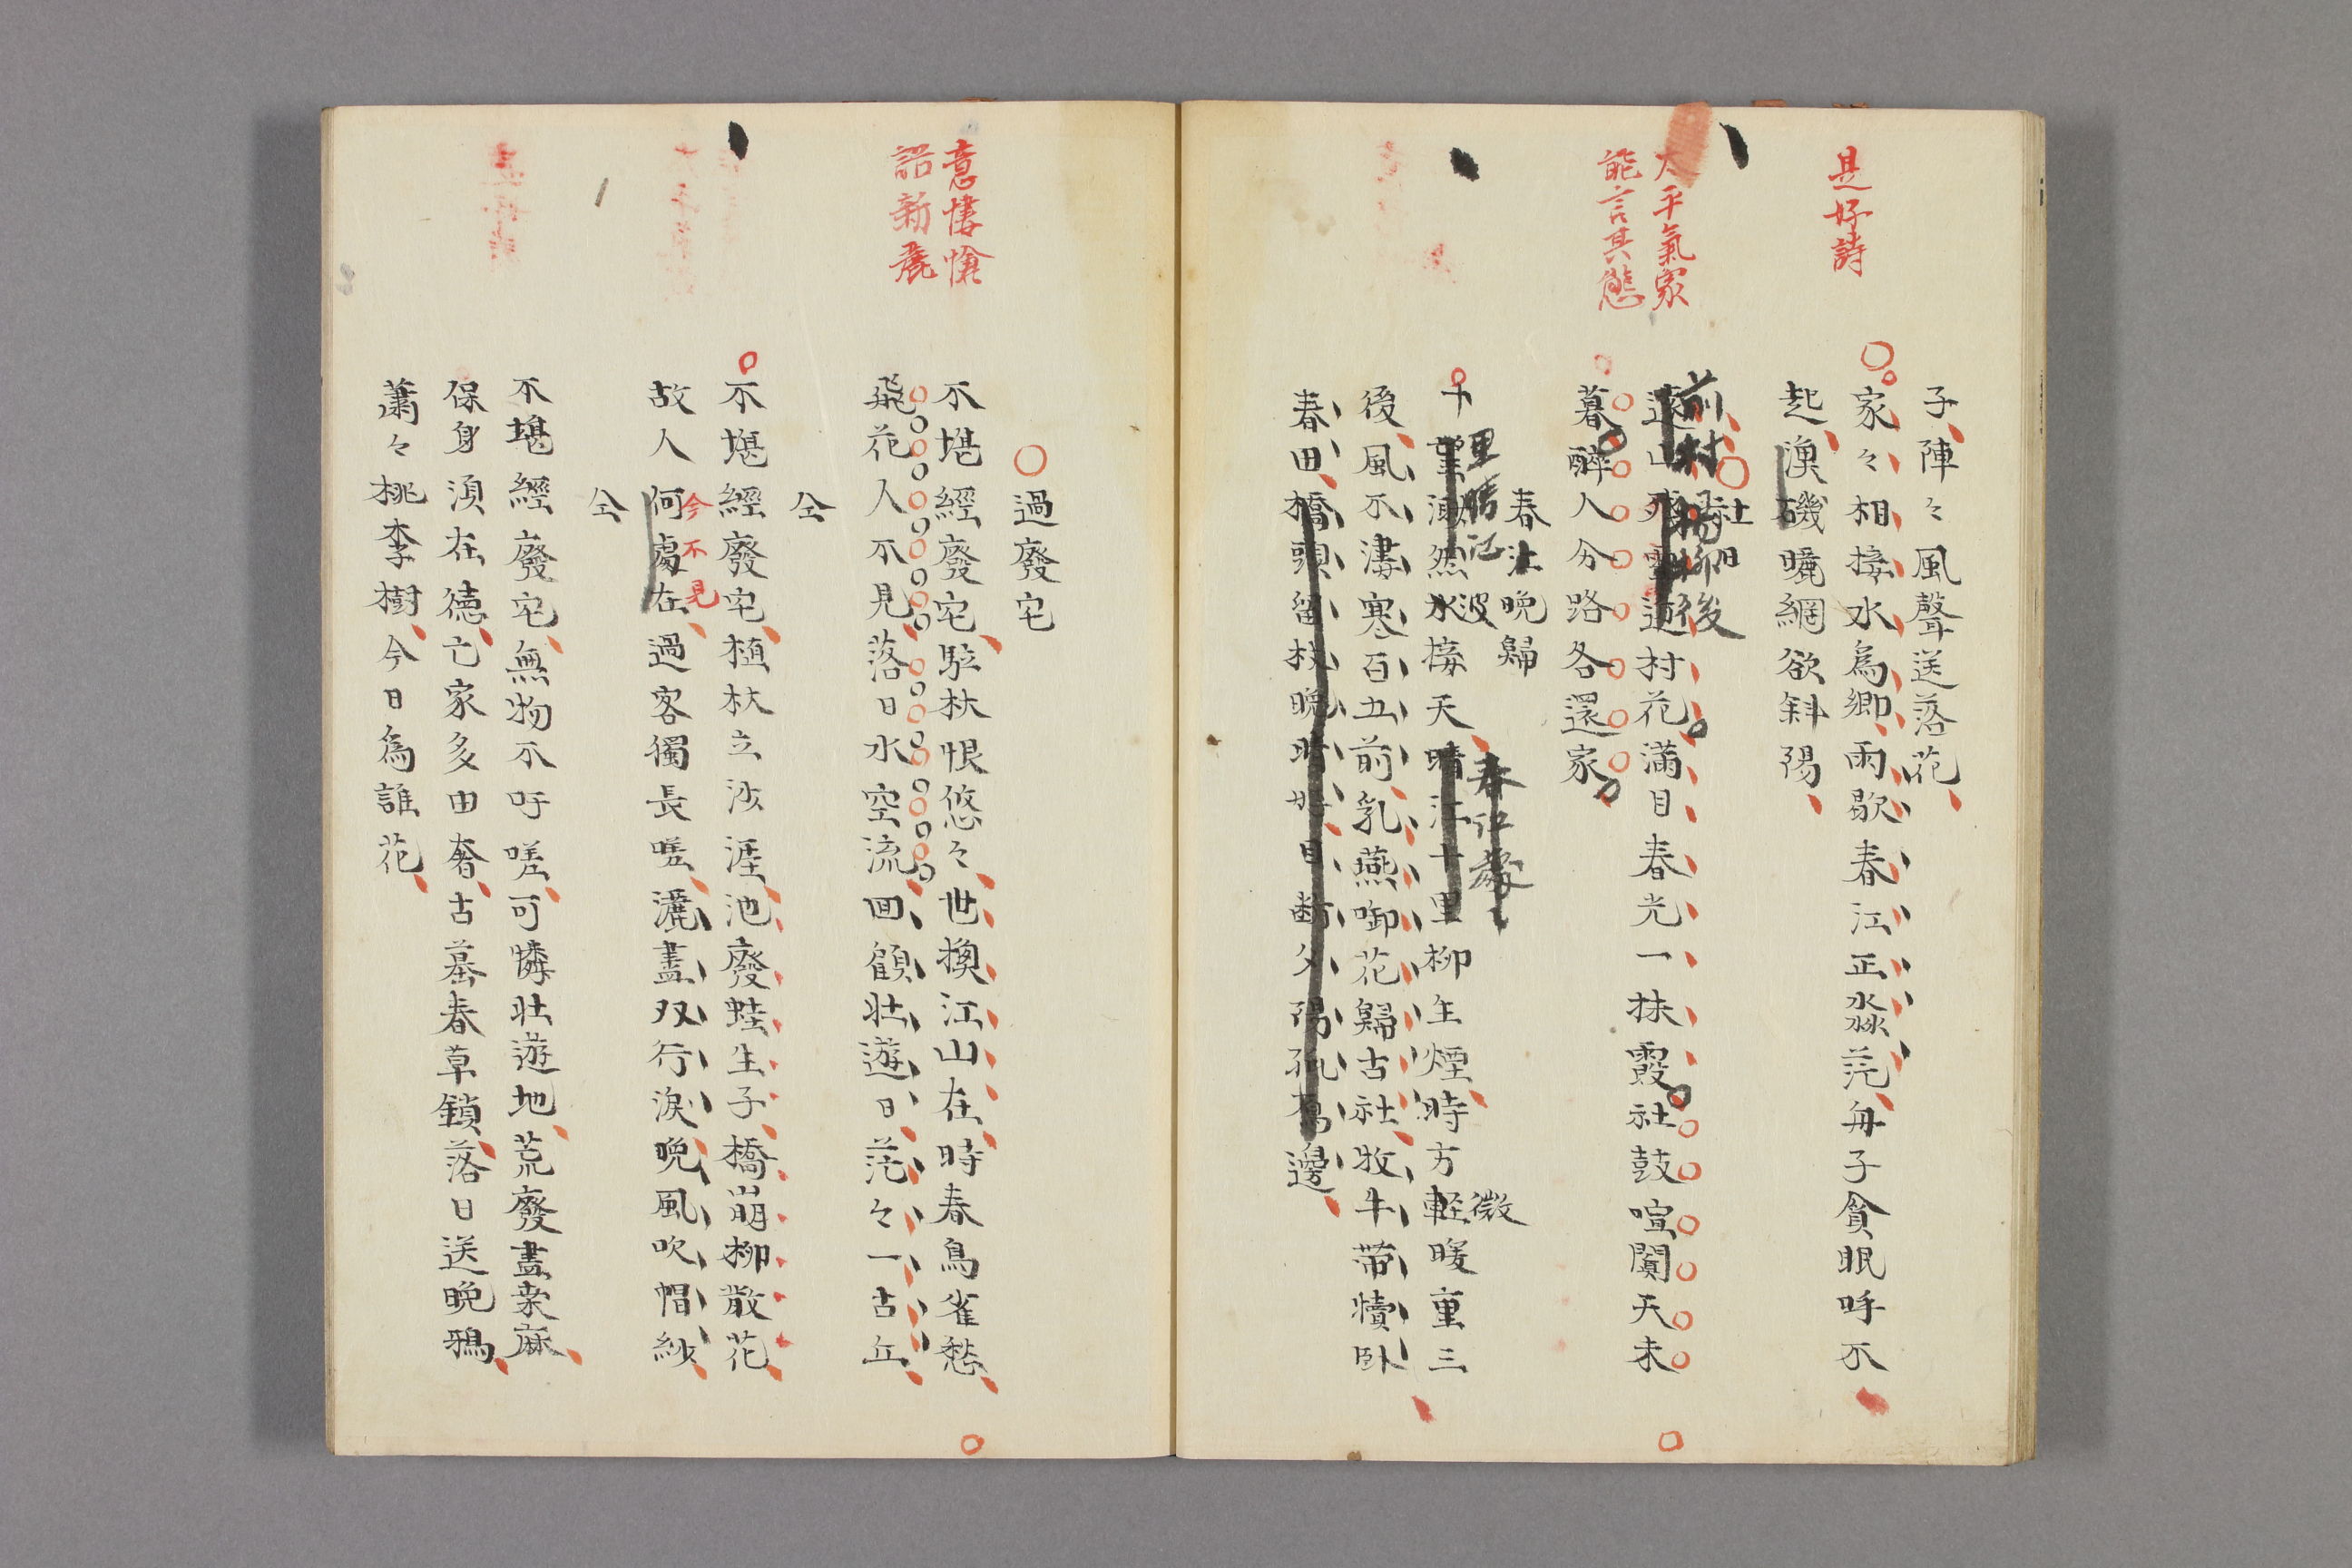 是好詩
太平氣象
能言其態
子陣々風聲送落花
家々相接水為鄉雨歇春江正淼茫舟子貪眠呼不
起漁磯曬網欲斜陽
社日
前村楊柳後
遠山殘雪過村花滿目春光一抹霞社鼓喧闐天未
暮醉人分路各還家
春江晚歸
里晴江波
春江蒙々
微
十望淑然水接天晴江十里柳生煙時方輕暖重三
後風不凄寒百五前乳燕啣花歸古社牧牛帶犢臥
春田橋頭留杖晚晴好目斷夕陽孤鳥邊
意悽愴
語新麗
過廢宅
不堪經廢宅駐杖恨悠々世換江山在時春鳥雀愁
飛花人不見落日水空流回顧壯遊日茫々一古丘
仝
不堪經廢宅植杖立沙涯池廢蛙生子橋崩柳散花
今不見
故人何處在過客獨長嗟灑盡双行淚晚風吹帽紗
仝
不堪經廢宅無物不吁嗟可憐壯遊地荒廢盡桑麻
保身須在德亡家多由奢古墓春草鎖落日送晚鴉
蕭々桃李樹今日為誰花